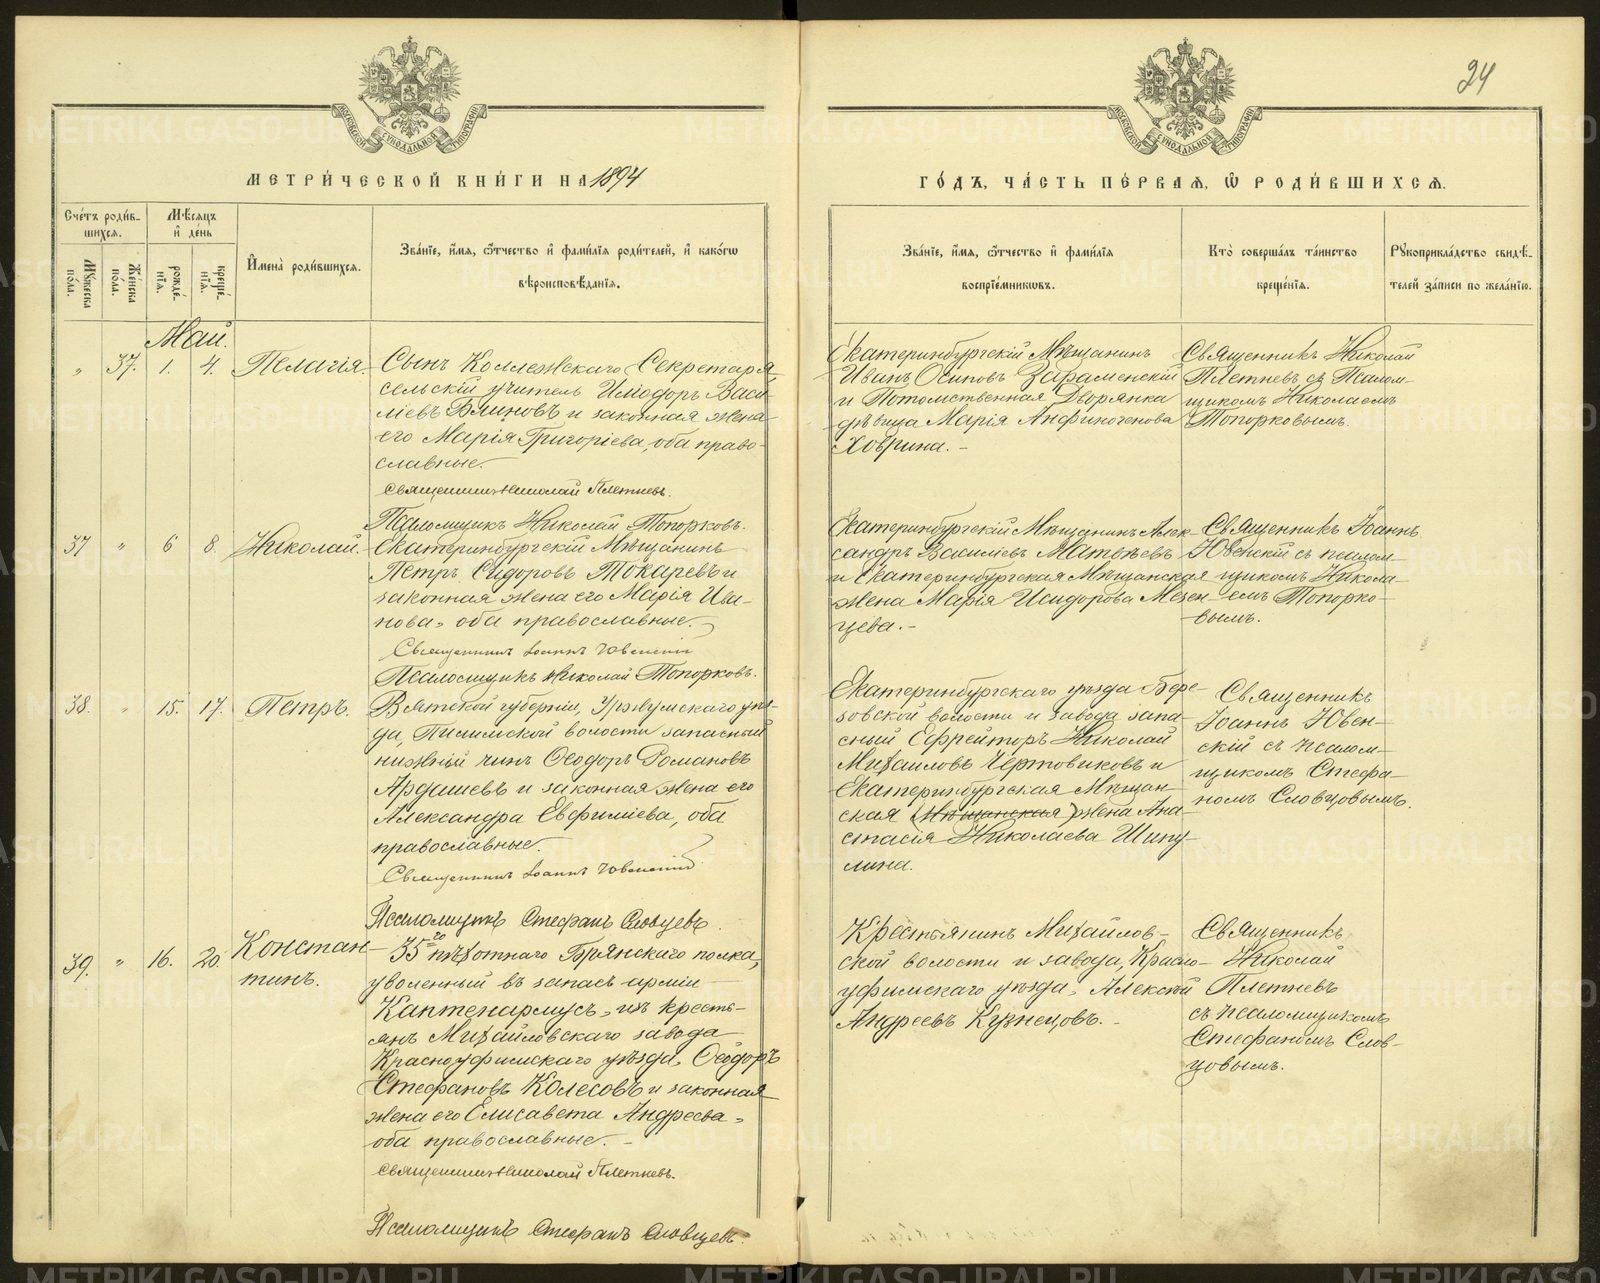 24
МЕТРИ́ЧЕСКОЙ КНИ́ГИ НА 1894
ГО́ДЪ, ЧА́СТЬ ПЕ́РВАЯ, Ѡ РОДИ́ВШИХСЯ.
Сче́тъ роди́в-
шихся.
Мꙋжеска по́ла.
Же́нска по́ла.
Мѣ́сяцъ
и де́нь
рожде́-
нія.
креще́-
нія.
И́мена роди́вшихся.
Зва́ніе, и́мя, ѻ́тчество и фами́лія роди́телей, и како́гѡ
вѣроисповѣ́данія.
Зва́ніе, и́мя, ѻ́тчество и фами́лія
воспріе́мникѡвъ.
Кто̀ соверша́лъ та́инство
креще́нія.
Рꙋкоприкла́дство свидѣ́-
телей за́писи по жела́нію.
Май.
" 37. 1. 4. Пелагія.
Сынъ Коллежскаго Секретаря,
сельскій учитель Исидоръ Васи-
ліевъ Блиновъ и законная жена
его Марія Григоріева, оба право-
славные.
Священникъ Николай Плетневъ.
Псаломщикъ Николай Топорковъ.
Екатеринбургскій Мѣщанинъ
Иванъ Осиповъ Зараменскій
и Потомственная Дворянка
дѣвица Марія Анфиногенова
Ховрина. –
Священникъ Николай
Плетневъ съ Псалом-
щикомъ Николаемъ
Топорковымъ.
37 " 6 8. Николай.
Екатеринбургскій Мѣщанинъ
Петръ Сидоровъ Токаревъ и
законная жена его Марія Ива-
нова, оба православные.
Священникъ Іоаннъ Ювенскій
Псаломщикъ Николай Топорковъ.
Екатеринбургскій Мѣщанинъ Алек-
сандръ Васильевъ Матвѣевъ
и Екатеринбургская Мѣщанская
жена Марія Исидорова Мезен-
цева. –
Священникъ Іоаннъ
Ювенскій съ псалом-
щикомъ Никола-
емъ Топорко-
вымъ.
38. " 15. 17. Петръ.
Вятской губерніи, Уржумскаго уѣз-
да, волости запасный
нижній чинъ Ѳеодоръ Романовъ
Ардашевъ и законная жена его
Александра Евфиміева, оба
православные.
Священникъ Іоаннъ Ювенскій
Псаломщикъ Стефанъ Словцевъ.
Екатеринбургскаго уѣзда Бере-
зовской волости и завода запа-
сный Ефрейторъ Николай
Михаиловъ Чертовиковъ и
Екатеринбургская Мѣщан-
ская (Мѣщанская) жена Ана-
стасія Николаева Шипу-
лина.
Священникъ
Іоаннъ Ювен-
скій съ псалом-
щикомъ Стефа-
номъ Словцовымъ.
39. " 16. 20. Констан-
тинъ.
35го пѣхотнаго Брянскаго полка,
уволенный въ запасъ арміи
Каптенармусъ, изъ кресть-
янъ Михайловскаго завода
Красноуфимскаго уѣзда, Ѳеодоръ
Стефановъ Колесовъ и законная
жена его Елисавета Андреева,
оба православные. –
Священникъ Николай Плетневъ.
Псаломщикъ Стефанъ Словцевъ.
Крестьянинъ Михайлов-
ской волости и завода, Красно-
уфимскаго уѣзда, Алексѣй
Андреевъ Кузнецовъ. –
Священникъ
Николай
Плетневъ
съ псаломщикомъ
Стефаномъ Слов-
цовымъ.